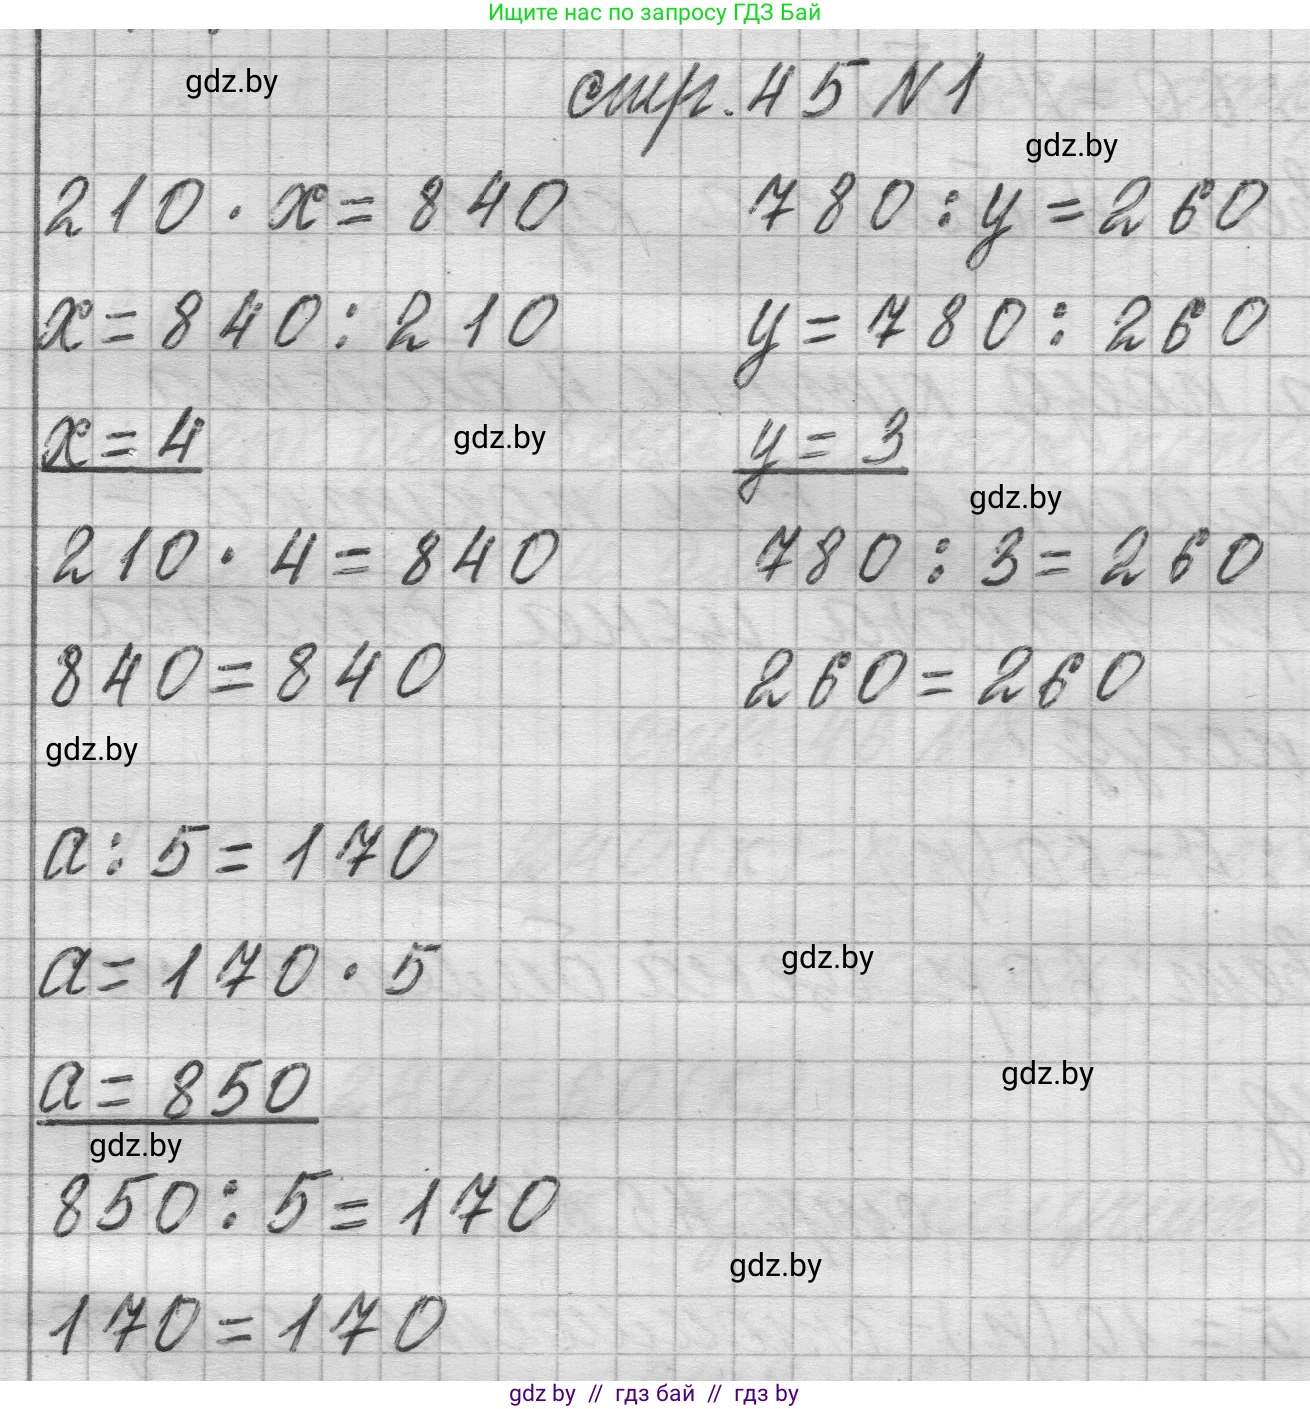 Ищите нас по запросу ГДЗ Бай
gdz.by
стр. 45 N 1
gdz.by
210 · x = 840
x = 840 : 210
x = 4
gdz.by
210 · 4 = 840
840 = 840
780 : y = 260
y = 780 : 260
y = 3
gdz.by
780 : 3 = 260
260 = 260
gdz.by
a : 5 = 170
a = 170 · 5
gdz.by
a = 850
gdz.by
gdz.by
850 : 5 = 170
gdz.by
170 = 170
gdz by // гдз бай // гдз by